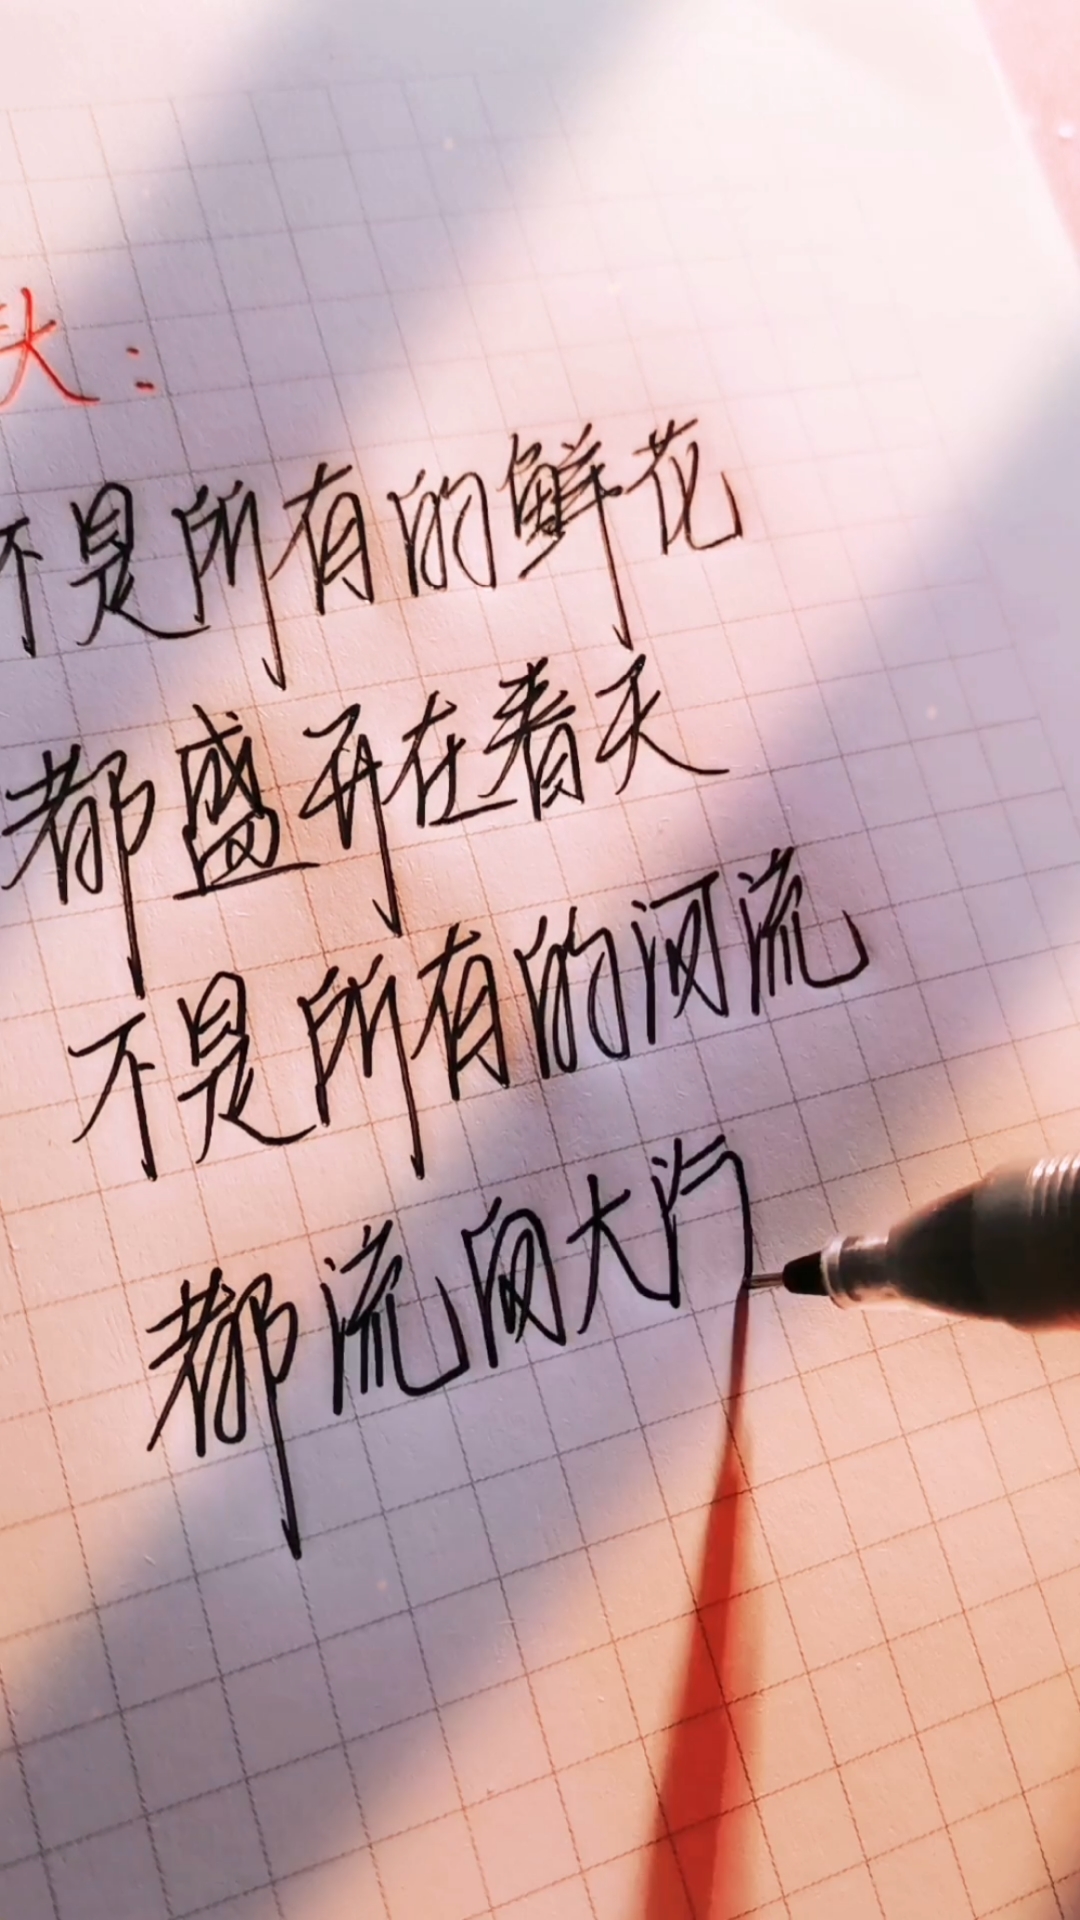 头：
不是所有的鲜花
都盛开在春天
不是所有的河流
都流向大